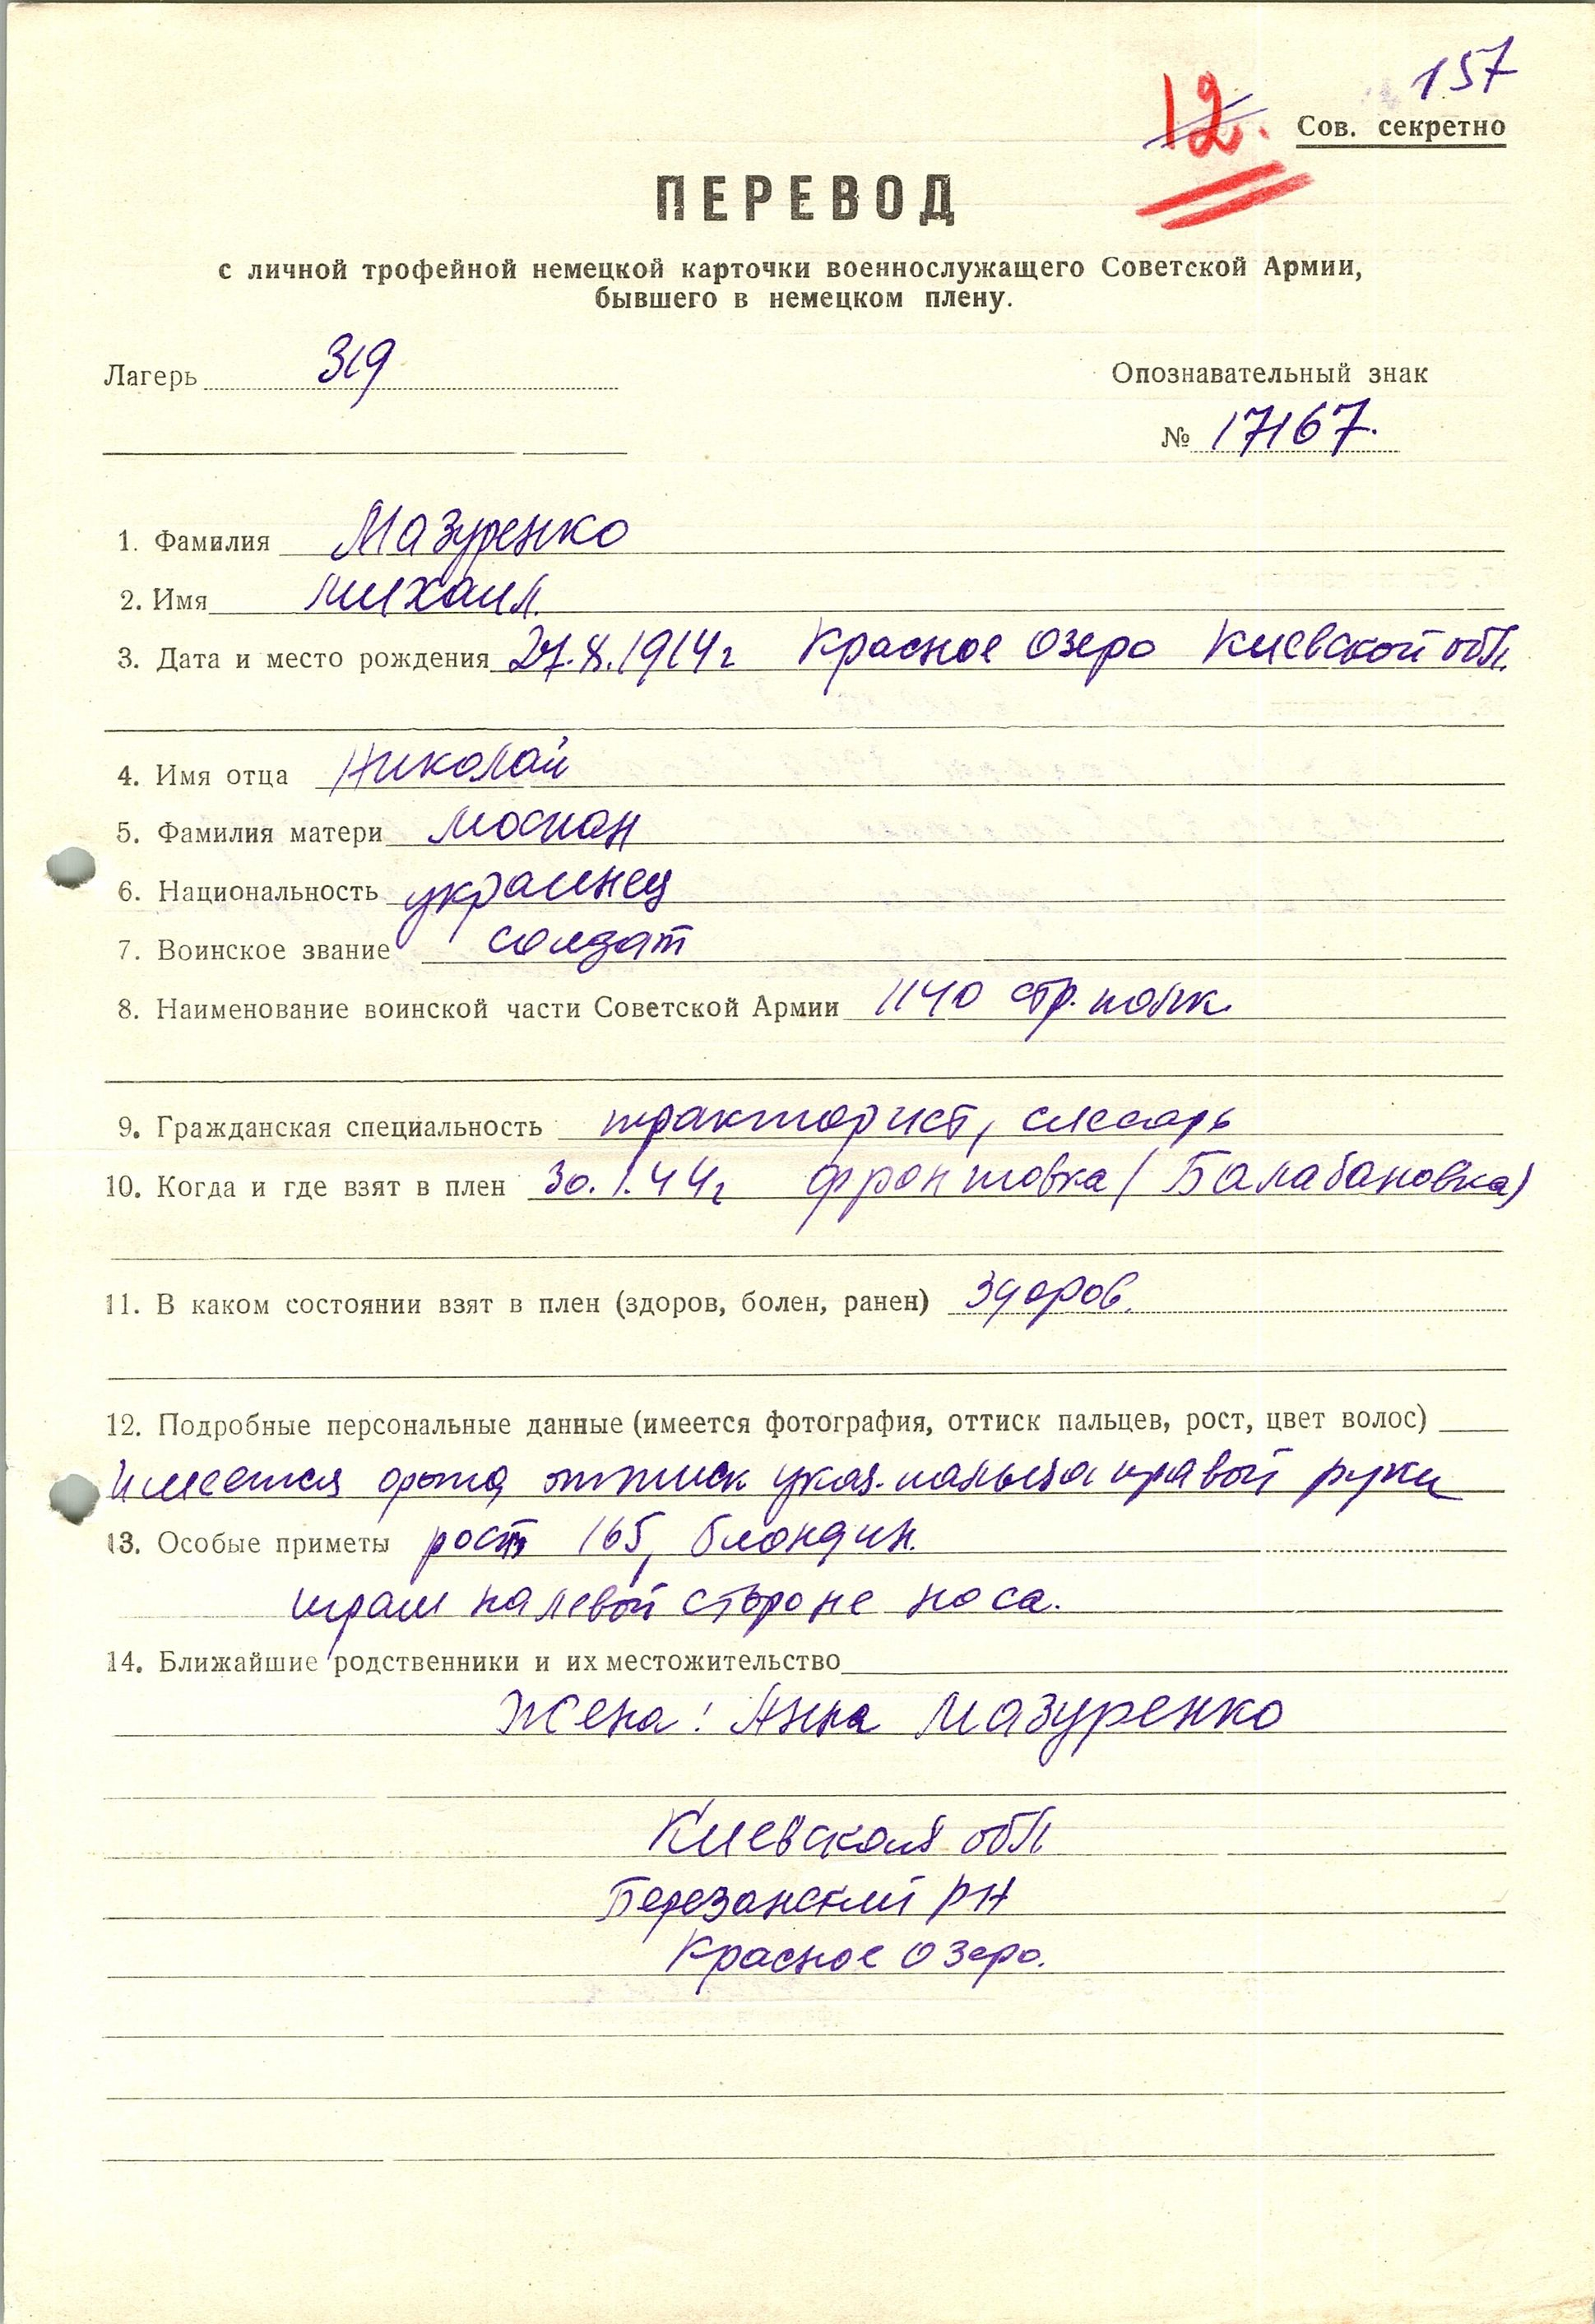 157
12.
Сов. секретно
ПЕРЕВОД
с личной трофейной немецкой карточки военнослужащего Советской Армии,
бывшего в немецком плену.
Лагерь 319
Опознавательный знак
№ 17167.
1. Фамилия Мазуренко
2. Имя Михаил.
3. Дата и место рождения 27.8.1914г Красное Озеро Киевской обл.
4. Имя отца Николай
5. Фамилия матери
6. Национальность украинец
7. Воинское звание солдат
8. Наименование воинской части Советской Армии 1140 стр. полк.
9. Гражданская специальность тракторист, слесарь
10. Когда и где взят в плен 30.1.44г Фронтовка (Балабановка)
11. В каком состоянии взят в плен (здоров, болен, ранен) здоров.
12. Подробные персональные данные (имеется фотография, оттиск пальцев, рост, цвет волос)
имеется фото, оттиск указ. пальца правой руки
13. Особые приметы рост 165, блондин.
шрам на левой стороне носа.
14. Ближайшие родственники и их местожительство
Жена: Анна Мазуренко
Киевская обл
Березанский р-н
Красное Озеро.